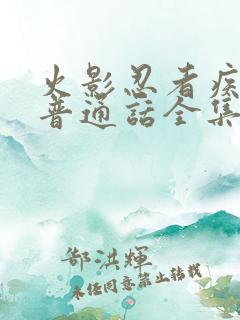 火影忍者疾
普通話全集
郜洪輝
未經同意禁止轉載